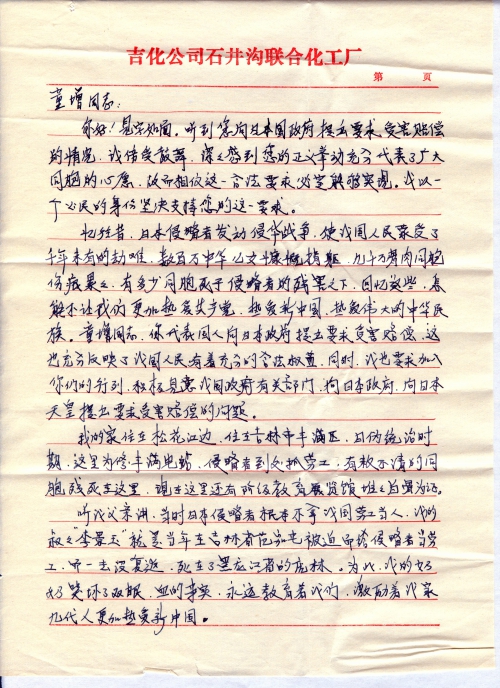 吉化公司石井沟联合化工厂
第 页
童增同志:
你好!见字如面。听到您向日本国政府提出要求受害赔偿
的情况,我倍受鼓舞,深深感到您的正义举动充分代表了广大
同胞的心愿,故而相信这一合法要求必定能够实现。我以一
个公民的身份坚决支持您的这一要求。
忆往昔,日本侵略者发动侵华战争,使我国人民蒙受了
千年未有的劫难,数百万中华儿女慷慨捐躯,几千万骨肉同胞
伤痕累累,有多少同胞死于侵略者的残害之下,回忆这些,怎
能不让我们更加热爱共产党,热爱新中国,热爱伟大的中华民
族。童增同志,你代表国人向日本政府提出要求受害赔偿,这
也充分反映了我国人民有着充分的合法权益,同时,我也要求加入
你们的行列,积极恳求我国政府有关部门,向日本政府,向日本
天皇提出要求受害赔偿的问题。
我的家住在松花江边,住在吉林市丰满区,日伪统治时
期,这里为修丰满电站,侵略者到处抓劳工,有数不清的同
胞残死在这里,现在这里还有阶级教育展览馆 堆堆白骨为证。
听我父亲讲,当时日本侵略者根本不拿我国劳工当人,我的
叔叔"李景玉"就是当年在吉林省 被迫给侵略者当劳
工,而一去没复返,死在了黑龙江省的虎林。为此,我的奶
奶哭坏了双眼,血的事实,永远教育着我们,激励着我家
几代人更加热爱新中国。